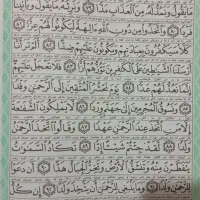 مَا يَقُولُ وَنَمُدُّ لَهُۥ مِنَ ٱلْعَذَابِ مَدًّا ٧٩ وَنَرِثُهُۥ مَا يَقُولُ وَيَأْتِينَا
فَرْدًا ٨٠ وَٱتَّخَذُوا۟ مِن دُونِ ٱللَّهِ ءَالِهَةً لِّيَكُونُوا۟ لَهُمْ عِزًّا ٨١
كَلَّا سَيَكْفُرُونَ بِعِبَادَتِهِمْ وَيَكُونُونَ عَلَيْهِمْ ضِدًّا ٨٢ أَلَمْ تَرَ أَنَّآ
أَرْسَلْنَا ٱلشَّيَٰطِينَ عَلَى ٱلْكَٰفِرِينَ تَؤُزُّهُمْ أَزًّا ٨٣ فَلَا تَعْجَلْ عَلَيْهِمْ
إِنَّمَا نَعُدُّ لَهُمْ عَدًّا ٨٤ يَوْمَ نَحْشُرُ ٱلْمُتَّقِينَ إِلَى ٱلرَّحْمَٰنِ وَفْدًا ٨٥
وَنَسُوقُ ٱلْمُجْرِمِينَ إِلَىٰ جَهَنَّمَ وِرْدًا ٨٦ لَّا يَمْلِكُونَ ٱلشَّفَٰعَةَ
إِلَّا مَنِ ٱتَّخَذَ عِندَ ٱلرَّحْمَٰنِ عَهْدًا ٨٧ وَقَالُوا۟ ٱتَّخَذَ ٱلرَّحْمَٰنُ
وَلَدًا ٨٨ لَّقَدْ جِئْتُمْ شَيْـًٔا إِدًّا ٨٩ تَكَادُ ٱلسَّمَٰوَٰتُ
يَتَفَطَّرْنَ مِنْهُ وَتَنشَقُّ ٱلْأَرْضُ وَتَخِرُّ ٱلْجِبَالُ هَدًّا ٩٠ أَن دَعَوْا۟
لِلرَّحْمَٰنِ وَلَدًا ٩١ وَمَا يَنۢبَغِى لِلرَّحْمَٰنِ أَن يَتَّخِذَ وَلَدًا ٩٢ إِن كُلُّ